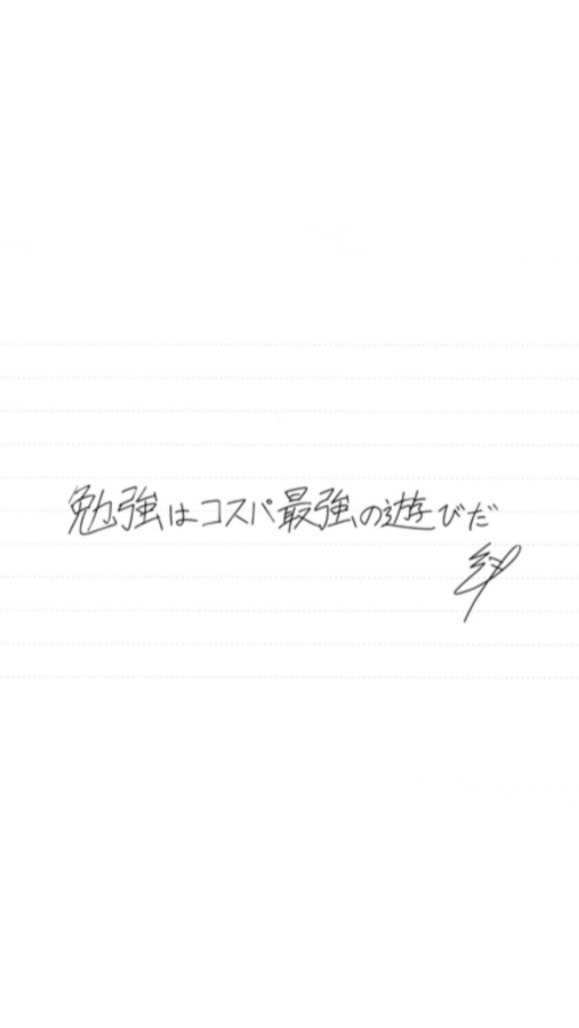 勉強はコスパ最強の遊びだ